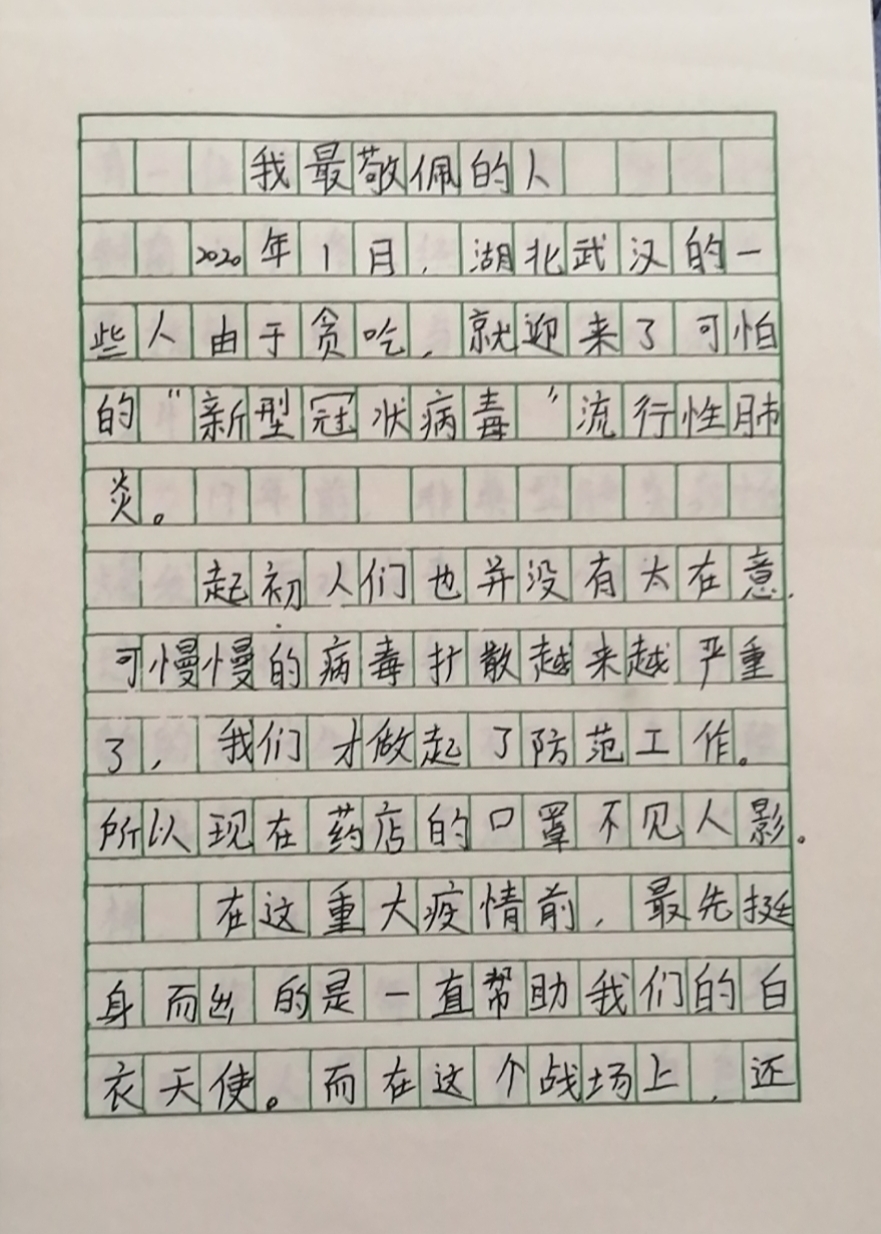 我最敬佩的人
2020年1月，湖北武汉的一
些人由于贪吃，就迎来了可怕
的“新型冠状病毒”流行性肺
炎。
起初人们也并没有太在意，
可慢慢的病毒扩散越来越严重
了，我们才做起了防范工作。
所以现在药店的口罩不见人影。
在这重大疫情前，最先挺
身而出的是一直帮助我们的白
衣天使。而在这个战场上，还